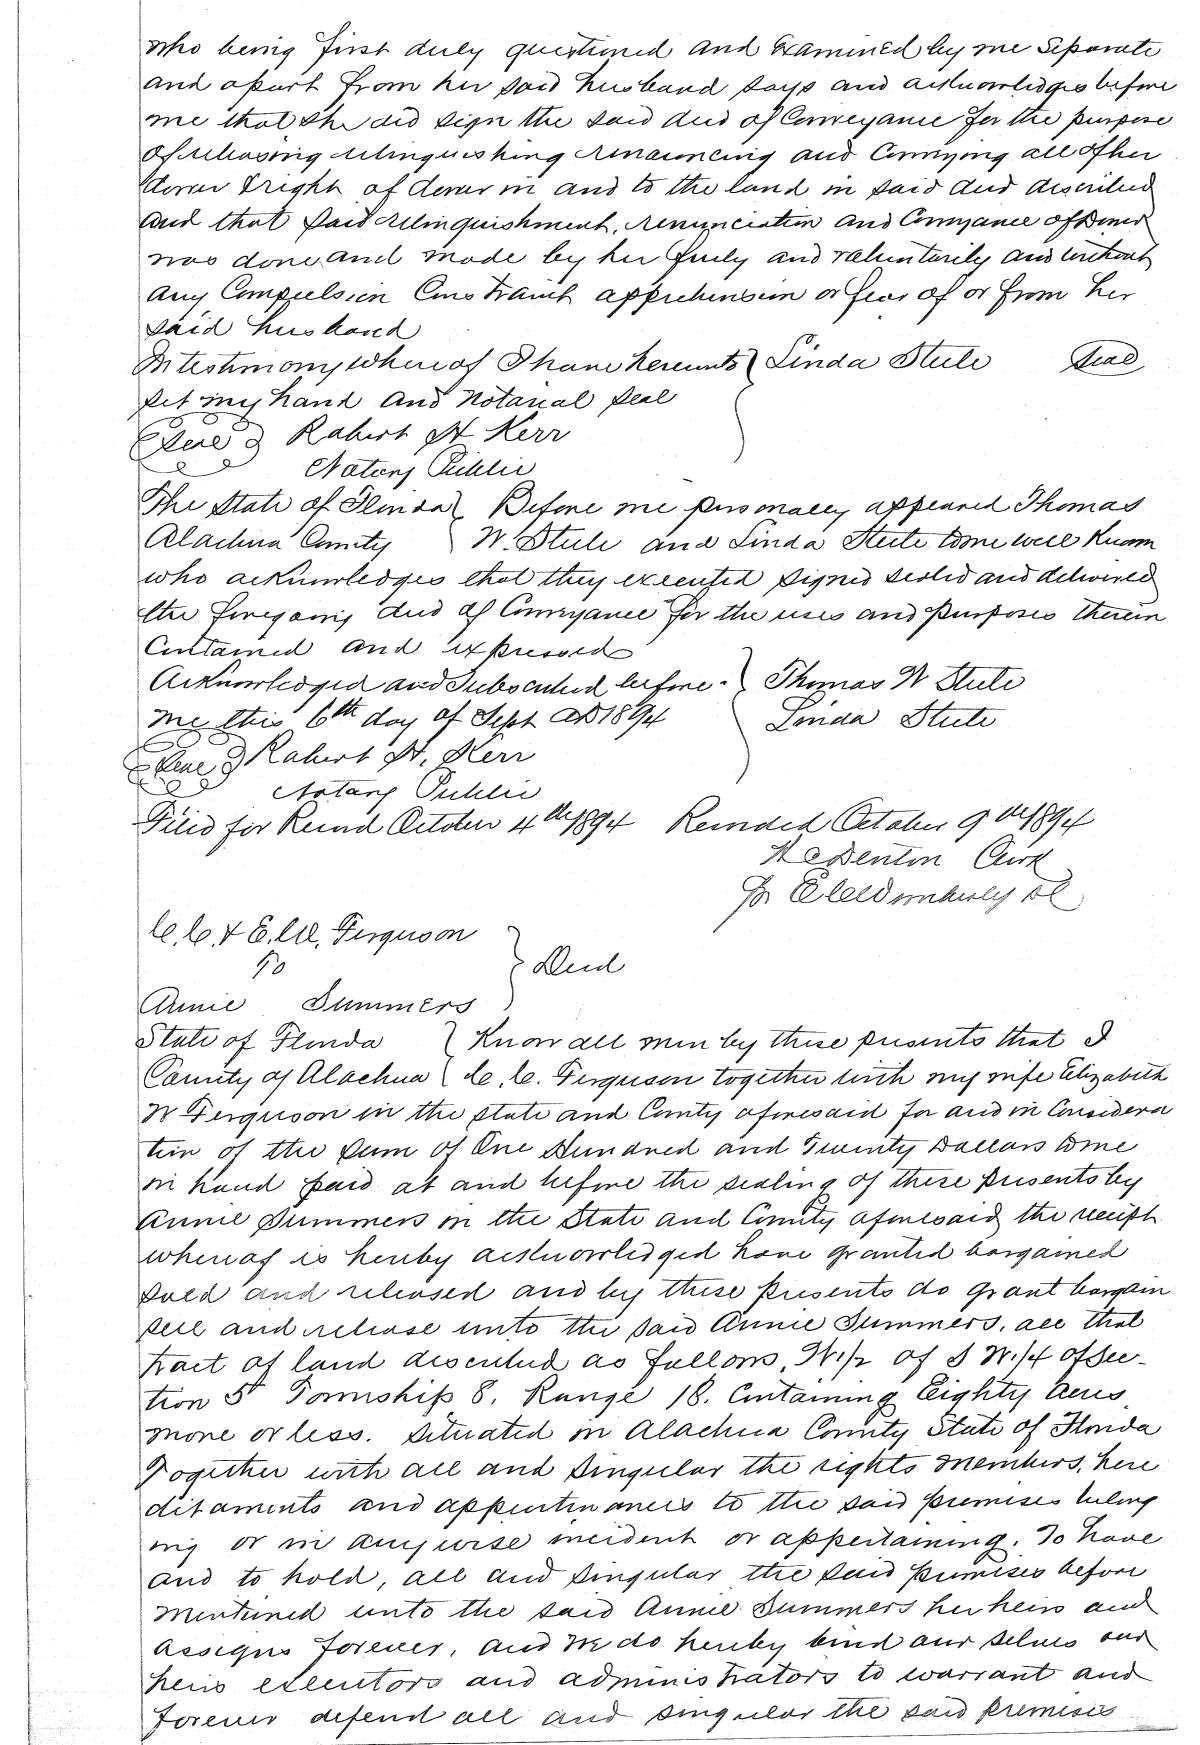 who being first duly questioned and examined by me separate
and apart from her said husband says and acknowledges before
me that she did sign the said deed of Conveyance for the purpose
of releasing relinquishing renouncing and Conveying all of her
dower & right of dower in and to the land in said deed described
and that said relinquishment, renunciation and Conveyance of Dower
was done and made by her freely and voluntarily and without
any Compulsion Constraint apprehension or fear of or from her
said husband
In testimony whereof I have hereunto } Linda Steele Seal
set my hand and Notarial seal
Seal Robert H Kerr
Notary Public
The State of Florida } Before me personally appeared Thomas
Alachua County } W. Steele and Linda Steele to me well known
who acknowledges that they executed signed sealed and delivered
the foregoing deed of Conveyance for the uses and purposes therein
Contained and expressed
Acknowledged and Subscribed before } Thomas W Steele
me this 6th day of Sept AD 1894 Linda Steele
Seal Robert H. Kerr
Notary Public
Filed for Record October 4th 1894 Recorded October 9th 1894
Denton Clerk
C. C. & E. W. Ferguson
To } Deed
Annie Summers
State of Florida } Know all men by these presents that I
County of Alachua } C. C. Ferguson together with my wife Elizabeth
W Ferguson in the state and County aforesaid for and in Considera
tion of the sum of One Hundred and Twenty Dollars to me
in hand paid at and before the sealing of these presents by
Annie Summers in the State and County aforesaid the receipt
whereof is hereby acknowledged have granted bargained
sold and released and by these presents do grant bargain
sell and release unto the said Annie Summers, all that
tract of land described as follows, W.1/2 of S W.1/4 of Sec-
tion 5 Township 8. Range 18. Containing Eighty acres
more or less. situated in Alachua County State of Florida
Together with all and singular the rights members, here
ditaments and appurtinances to the said premises belong
ing or in anywise incident or appertaining. To have
and to hold, all and singular the said premises before
mentioned unto the said Annie Summers her heirs and
assigns forever, and We do hereby bind our selves our
heirs executors and administrators to warrant and
forever defend all and singular the said premises